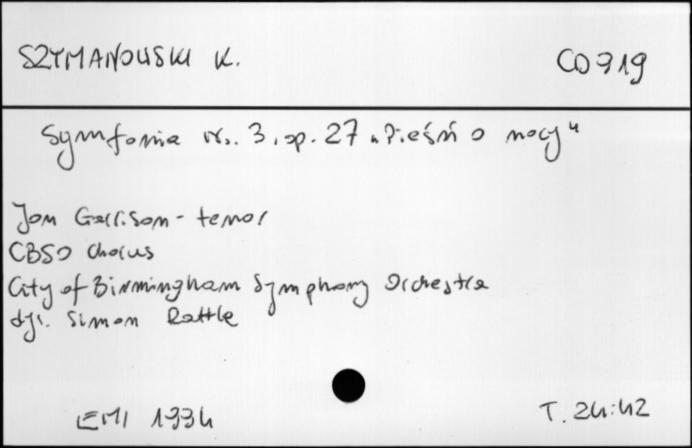 SZYMANOWSKI K. CD 719
Symfonia nr. 3, op. 27 „Pieśń o nocy"
Jon Garrison - tenor
CBSO Chorus
City of Birmingham Symphony Orchestra
dyr. Simon Rattle
EMI 1994 T. 24:42